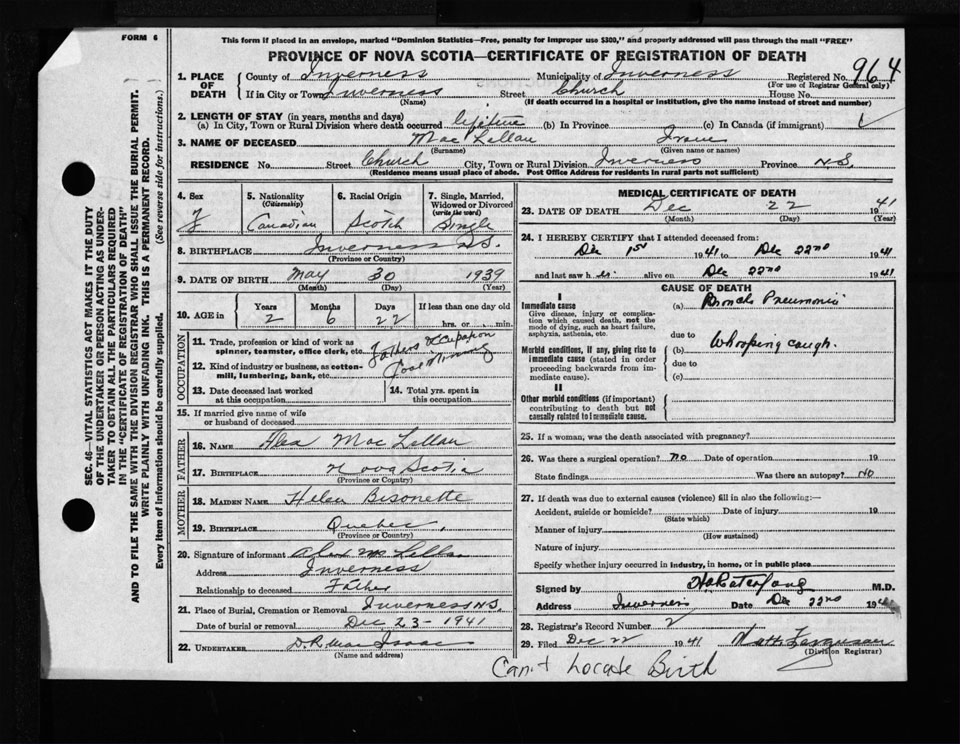 FORM 6
This form if placed in an envelope, marked "Dominion Statistics—Free, penalty for improper use $300," and properly addressed will pass through the mail "FREE"
PROVINCE OF NOVA SCOTIA—CERTIFICATE OF REGISTRATION OF DEATH
1. PLACE OF DEATH
County of Inverness Municipality of Inverness Registered No. 964
(For use of Registrar General only)
If in City or Town Inverness Street Church House No.
(Name) (If death occurred in a hospital or institution, give the name instead of street and number)
2. LENGTH OF STAY (in years, months and days)
(a) In City, Town or Rural Division where death occurred lifetime (b) In Province (c) In Canada (if immigrant)
3. NAME OF DECEASED Mac Lellan Irene
(Surname) (Given name or names)
RESIDENCE No. Street Church City, Town or Rural Division Inverness Province N.S.
(Residence means usual place of abode. Post Office Address for residents in rural parts not sufficient)
SEC. 46—VITAL STATISTICS ACT MAKES IT THE DUTY
OF THE UNDERTAKER OR PERSON ACTING AS UNDER-
TAKER TO OBTAIN ALL THE PARTICULARS REQUIRED
IN THE "CERTIFICATE OF REGISTRATION OF DEATH"
AND TO FILE THE SAME WITH THE DIVISION REGISTRAR WHO SHALL ISSUE THE BURIAL PERMIT.
WRITE PLAINLY WITH UNFADING INK. THIS IS A PERMANENT RECORD.
Every item of Information should be carefully supplied. (See reverse side for instructions.)
4. Sex F
5. Nationality (Citizenship) Canadian
6. Racial Origin Scotch
7. Single, Married, Widowed or Divorced (write the word) Single
8. BIRTHPLACE Inverness N.S.
(Province or Country)
9. DATE OF BIRTH May 30 1939
(Month) (Day) (Year)
10. AGE in Years 2 Months 6 Days 22 If less than one day old hrs. or min.
OCCUPATION
11. Trade, profession or kind of work as spinner, teamster, office clerk, etc. Fathers occupation
12. Kind of industry or business, as cotton-mill, lumbering, bank, etc. Coal Mining
13. Date deceased last worked at this occupation
14. Total yrs. spent in this occupation
15. If married give name of wife or husband of deceased
FATHER
16. NAME Alex Mac Lellan
17. BIRTHPLACE Nova Scotia
(Province or Country)
MOTHER
18. MAIDEN NAME Helen Bisonette
19. BIRTHPLACE Quebec
(Province or Country)
20. Signature of informant Alex Mc Lellan
Address Inverness
Relationship to deceased Father
21. Place of Burial, Cremation or Removal Inverness N.S.
Date of burial or removal Dec 23 - 1941
22. UNDERTAKER D.R. Mac Isaac
(Name and address)
MEDICAL CERTIFICATE OF DEATH
23. DATE OF DEATH Dec 22 1941
(Month) (Day) (Year)
24. I HEREBY CERTIFY that I attended deceased from:
Dec 1st 1941 to Dec 22nd 1941
and last saw h er alive on Dec 22nd 1941
CAUSE OF DEATH
I
Immediate cause (a) Broncho Pneumonia
Give disease, injury or complication which caused death, not the mode of dying, such as heart failure, asphyxia, asthenia, etc. due to
Morbid conditions, if any, giving rise to immediate cause (stated in order proceeding backwards from immediate cause). (b) Whooping cough.
due to
(c)
II
Other morbid conditions (if important) contributing to death but not causally related to immediate cause.
25. If a woman, was the death associated with pregnancy?
26. Was there a surgical operation? No Date of operation 19
State findings Was there an autopsy? No
27. If death was due to external causes (violence) fill in also the following:—
Accident, suicide or homicide? Date of injury 19
(State which)
Manner of injury
(How sustained)
Nature of injury
Specify whether injury occurred in industry, in home, or in public place
Signed by M.D.
Address Inverness Date Dec 22nd 19
28. Registrar's Record Number 2
29. Filed Dec 22 1941 Ferguson
(Division Registrar)
Can't Locate Birth